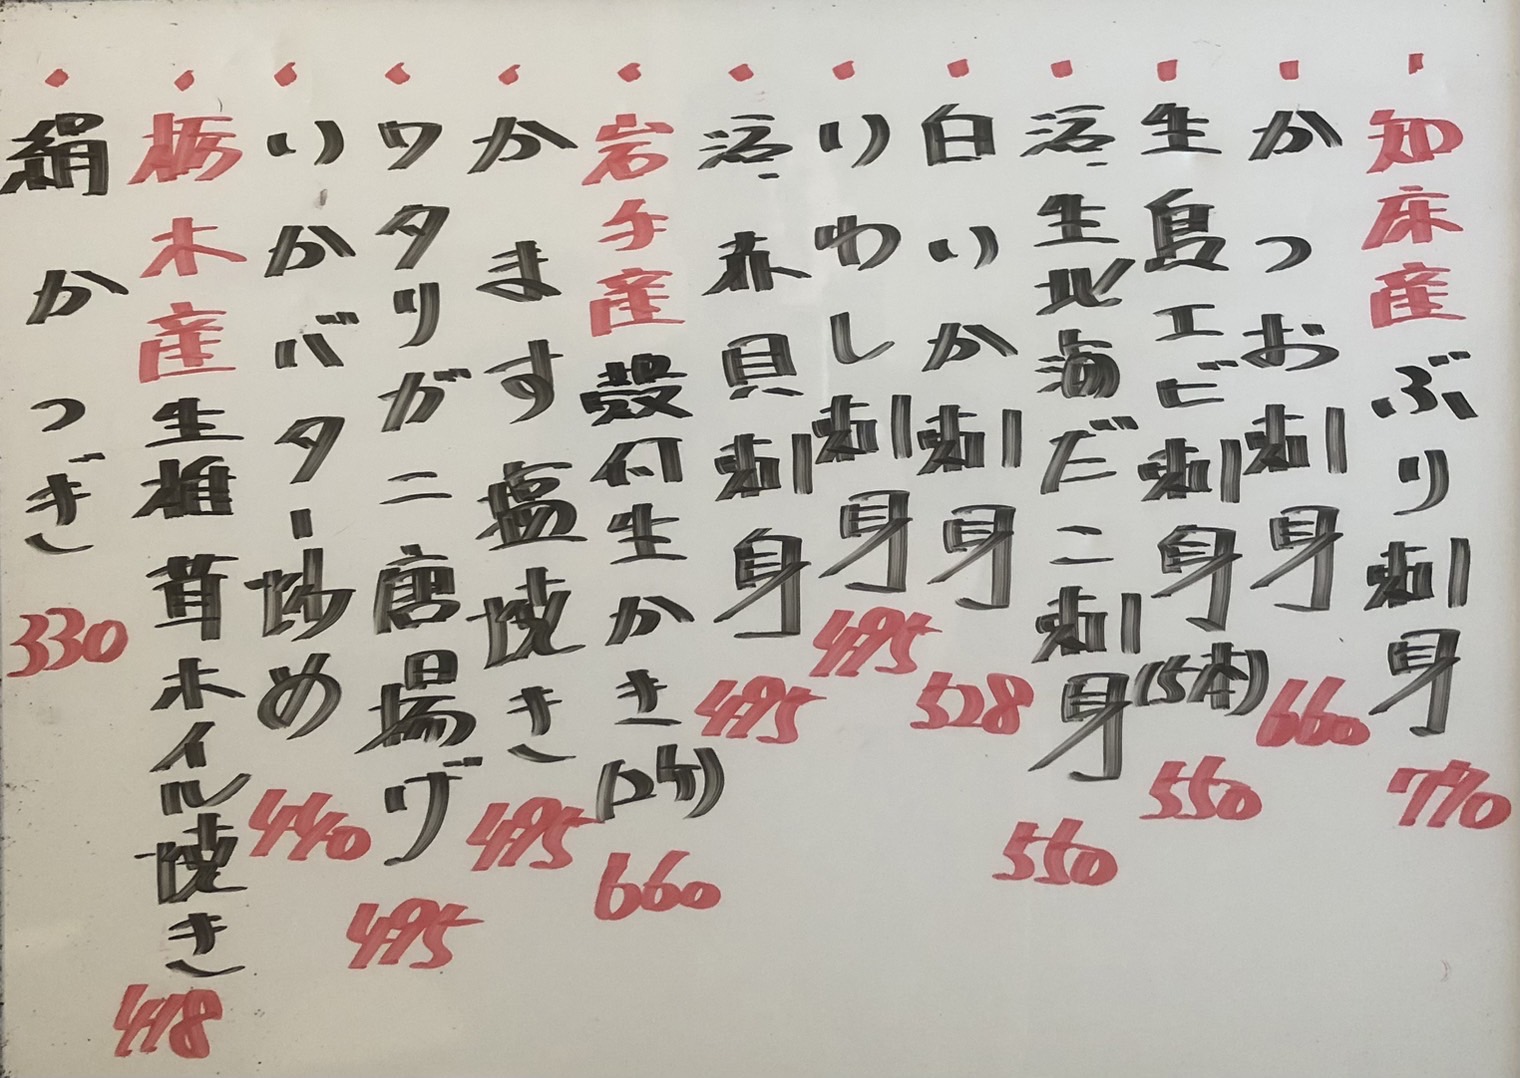 ・知床産ぶり刺身 770
・かつお刺身 660
・生島エビ刺身(5本) 550
・活生北海だこ刺身 550
・白いか刺身 528
・いわし刺身 495
・活赤貝刺身 495
・岩手産殻付生かき(2ケ) 660
・かます塩焼き 495
・ワタリガニ唐揚げ 495
・いかバター炒め 440
・栃木産生椎茸ホイル焼き 418
・絹かつぎ 330